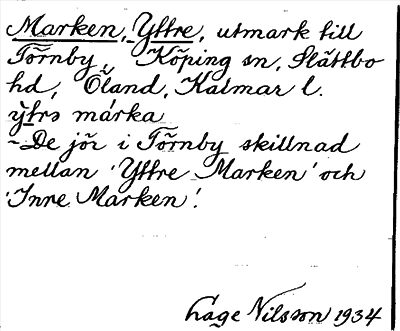 Marken, Yttre, utmark till
Törnby, Köping sn, Slättbo
hd, Öland, Kalmar l.
ýtrs márka
– De jör i Törnby skillnad
mellan 'Yttre Marken' och
'Inre Marken'.
Lage Nilsson 1934